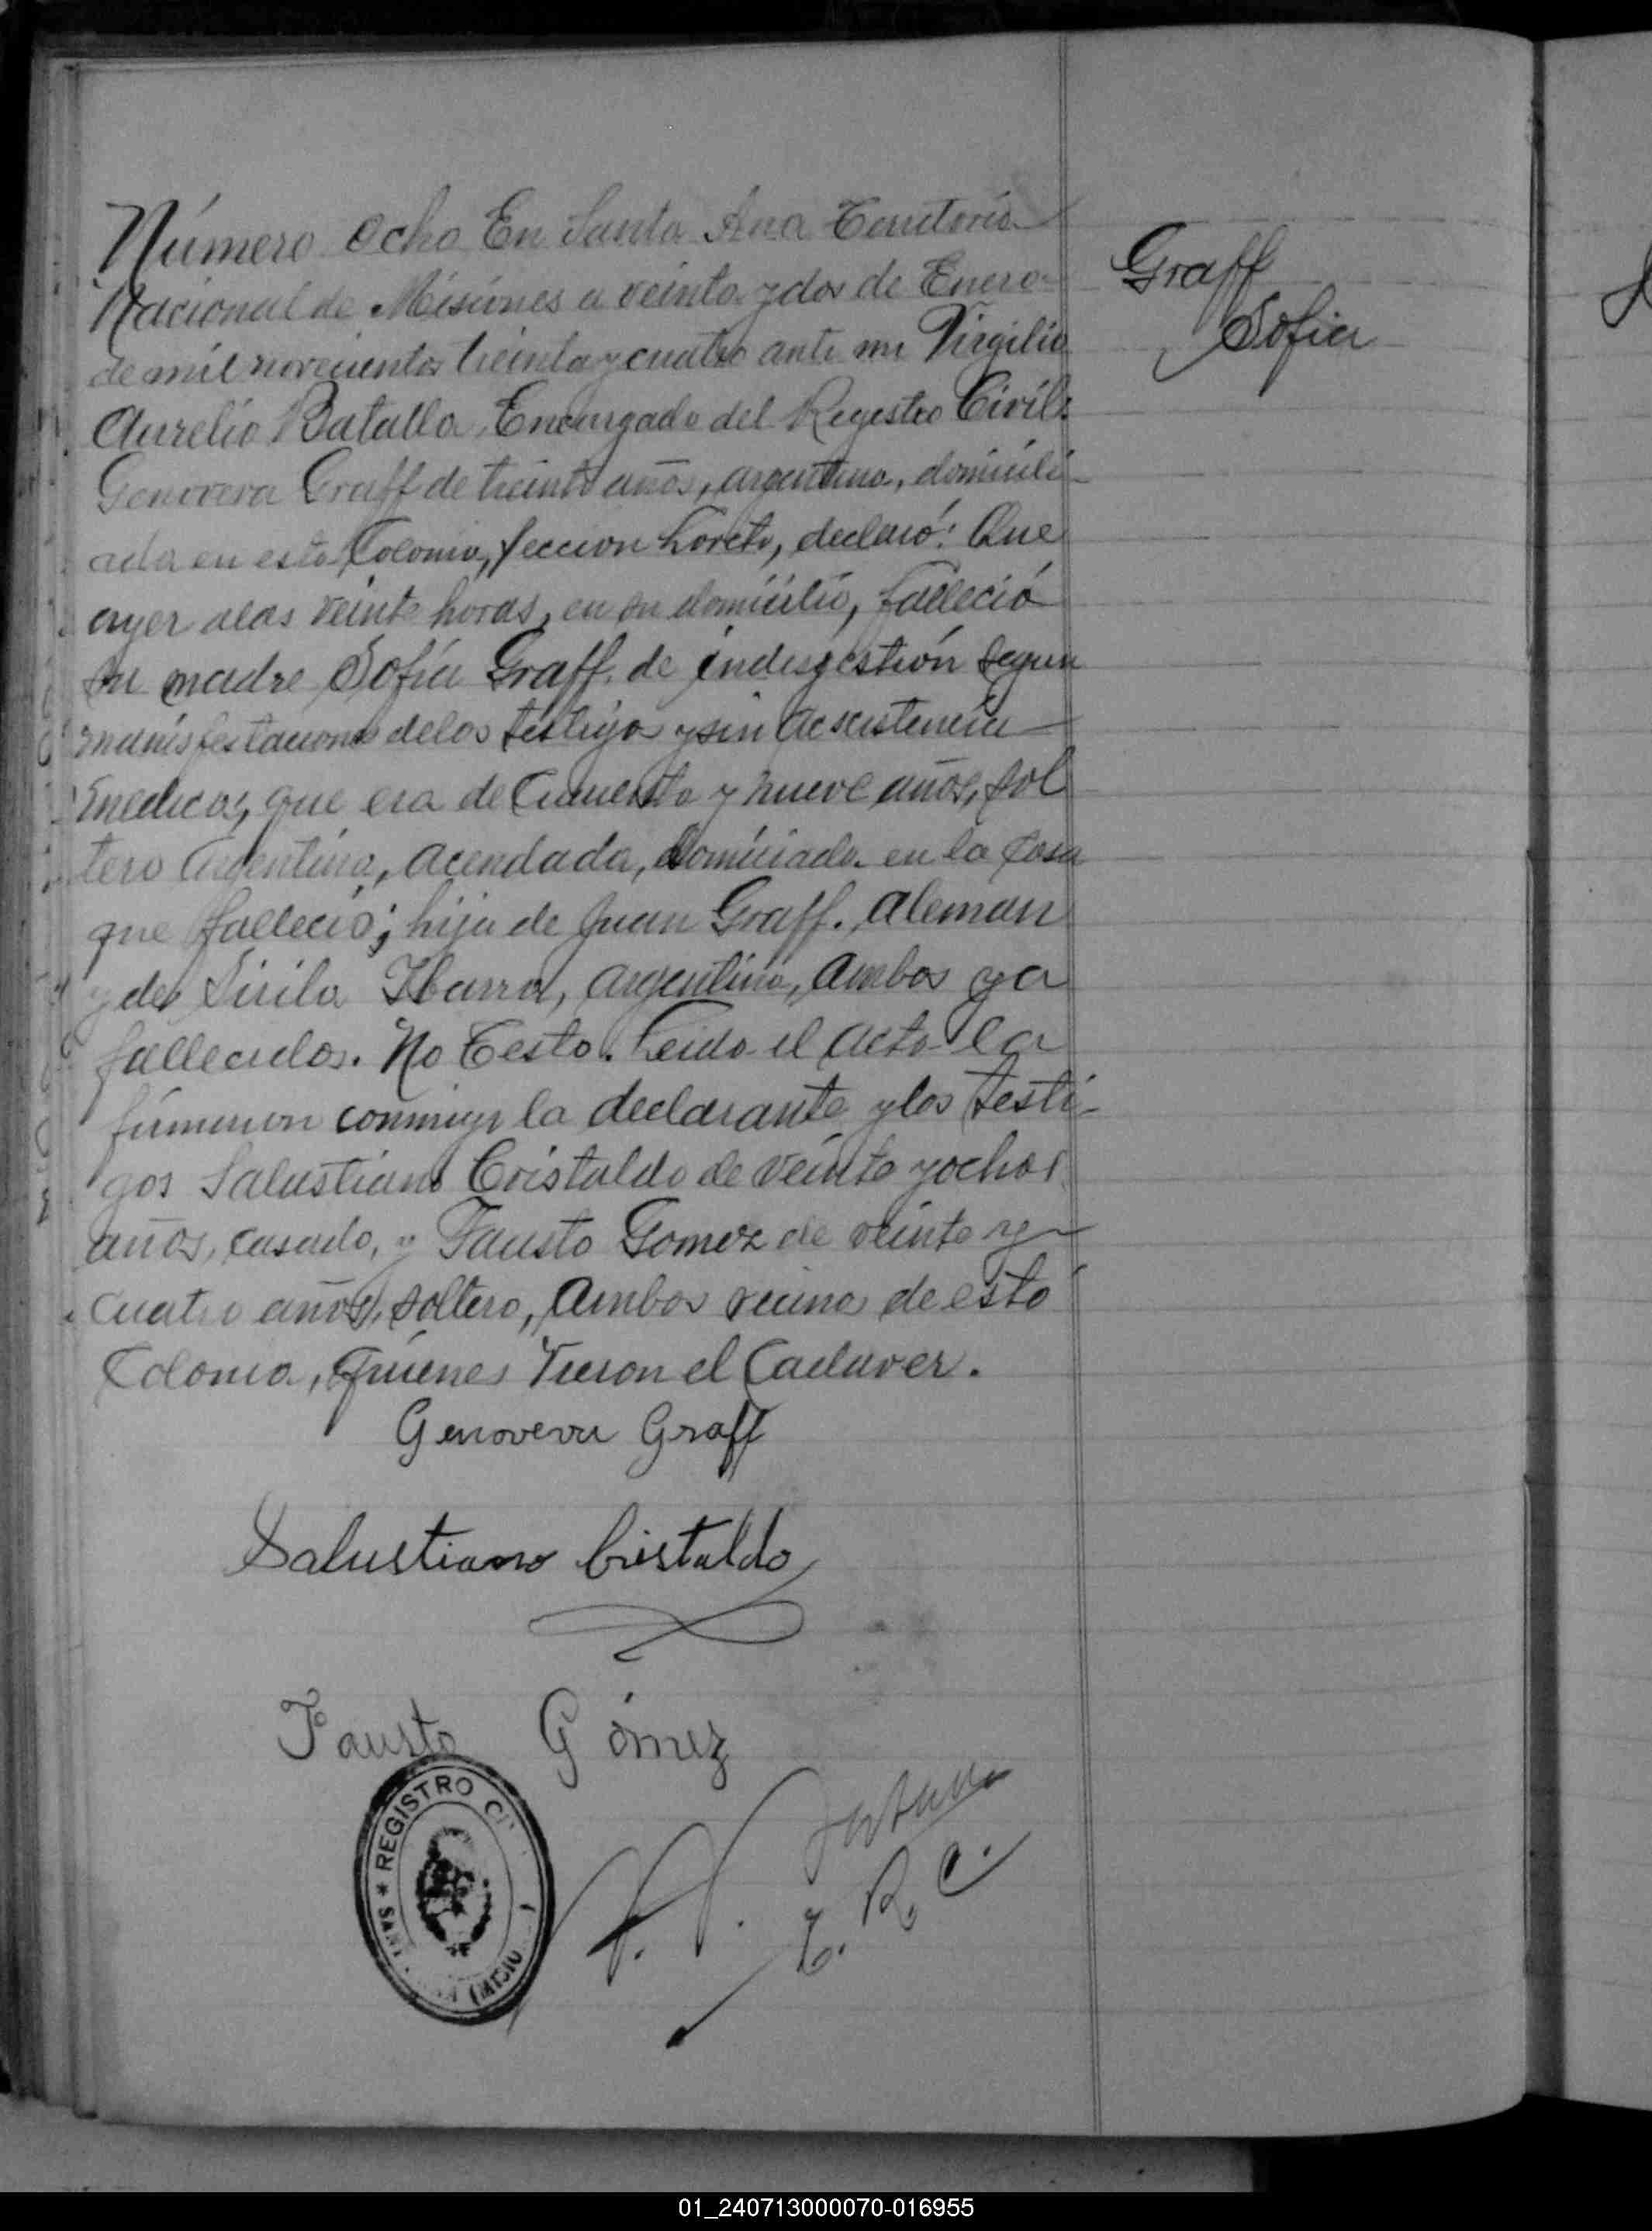 Número Ocho En Santa Ana Territorio
Nacional de Misiones a veinte y dos de Enero
de mil novecientos treinta y cuatro ante mi Virgilio
Aurelio Batalla, Encargado del Registro Civil:
Genoveva Graff de treinta años, argentina, domicili-
ada en esta Colonia, seccion Loreto, declaró: Que
ayer alas veinte horas, en su domicilio, falleció
su madre Sofia Graff. de indisgestión segun
manisfestaciones delos testigos y sin acsistencia
medicos, que era de Cincuenta y nueve años, sol
tera Argentina, acendada, domiciada en la Casa
que falleció; hija de Juan Graff. Aleman
y de Sirila Ibarra, argentina, Ambos ya
fallecidos. No Testo. Leido el Acta la
firmaron conmigo la declarante y los testi-
gos Salustiano Cristaldo de veinte y ochos
años, casado, y Fausto Gomez de veinte y
cuatro años, soltero, Ambos vecino de esta
Colonia, Quienes Vieron el Cadaver.
Graff
Sofia
Genoveva Graff
Salustiano Cristaldo
Fausto Gómez
E. R. C.
REGISTRO CI
01_240713000070-016955